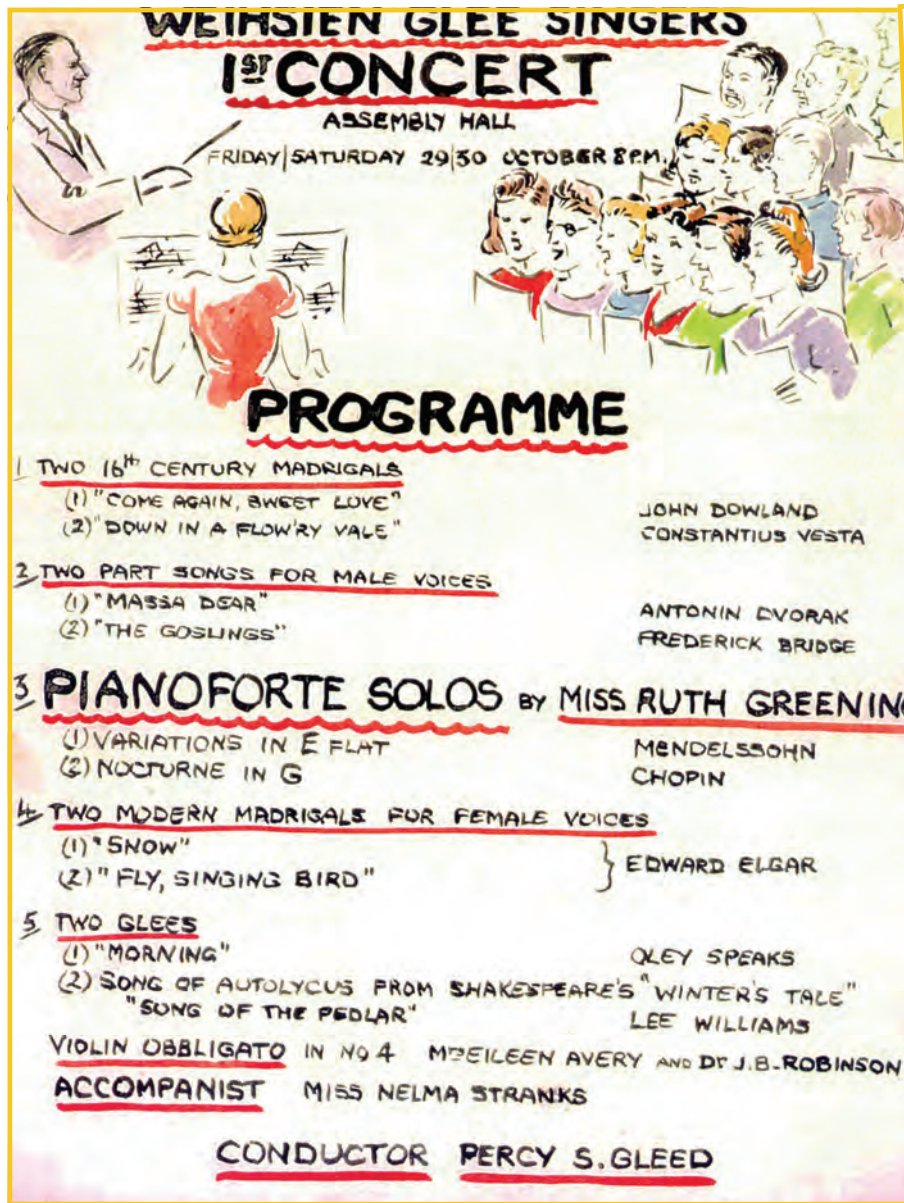 WEIHSIEN GLEE SINGERS
1ST CONCERT
ASSEMBLY HALL
FRIDAY|SATURDAY 29|30 OCTOBER 8 P.M.
PROGRAMME
1 TWO 16th CENTURY MADRIGALS
(1) "COME AGAIN, SWEET LOVE" JOHN DOWLAND
(2) "DOWN IN A FLOW'RY VALE" CONSTANTIUS VESTA
2 TWO PART SONGS FOR MALE VOICES
(1) "MASSA DEAR" ANTONIN DVORAK
(2) "THE GOSLINGS" FREDERICK BRIDGE
3 PIANOFORTE SOLOS BY MISS RUTH GREENING
(1) VARIATIONS IN E FLAT MENDELSSOHN
(2) NOCTURNE IN G CHOPIN
4 TWO MODERN MADRIGALS FOR FEMALE VOICES
(1) "SNOW"
(2) "FLY, SINGING BIRD" } EDWARD ELGAR
5 TWO GLEES
(1) "MORNING" OLEY SPEAKS
(2) SONG OF AUTOLYCUS FROM SHAKESPEARE'S "WINTER'S TALE"
"SONG OF THE PEDLAR" LEE WILLIAMS
VIOLIN OBBLIGATO IN NO 4 EILEEN AVERY AND Dr J.B. ROBINSON
ACCOMPANIST MISS NELMA STRANKS
CONDUCTOR PERCY S. GLEED